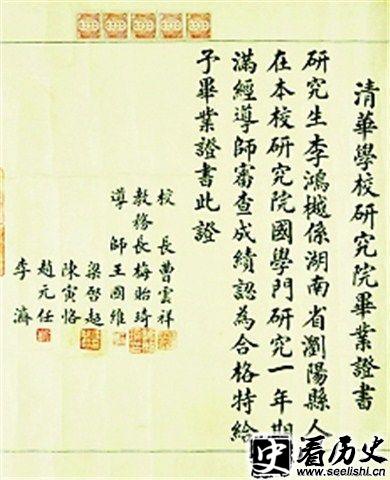 清華學校研究院畢業證書
研究生李鴻樾係湖南省瀏陽縣人
在本校研究院國學門研究一年期
滿經導師審查成績認為合格特給
予畢業證書此證
校長曹雲祥
教務長梅貽琦
導師王國維
梁啓超
陳寅恪
趙元任
李濟
史看历史
www.seelishi.cn